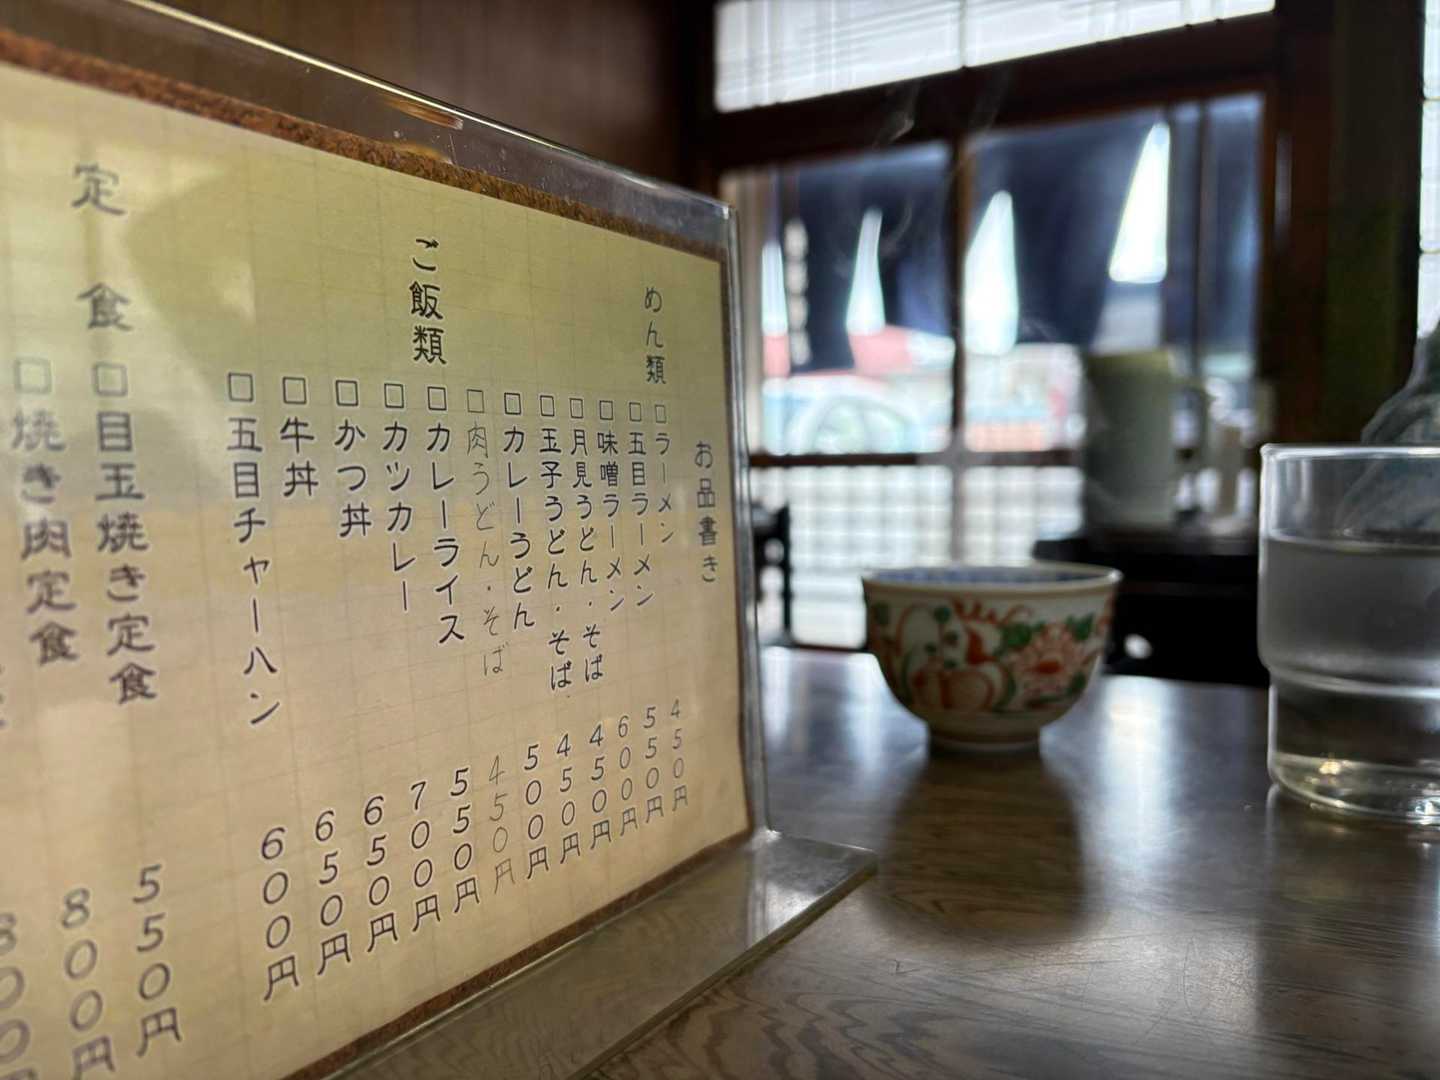 お品書き
めん類
□ラーメン 450円
□五目ラーメン 550円
□味噌ラーメン 600円
□月見うどん・そば 450円
□玉子うどん・そば 450円
□カレーうどん 500円
□肉うどん・そば 450円
ご飯類
□カレーライス 550円
□カツカレー 700円
□かつ丼 650円
□牛丼 650円
□五目チャーハン 600円
定食
□目玉焼き定食 550円
□焼き肉定食 800円